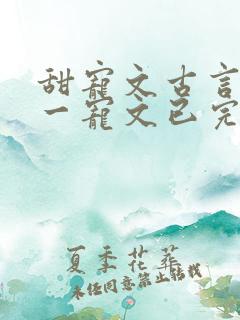 甜宠文古言
一宠文已完
夏季花葬
未经同意禁止转载